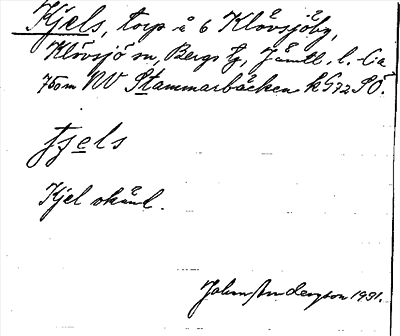 Kjels, torp å 6 Klövsjöby,
Klövsjö sn, Bergs tg, Jämtl. l. Ca
750m NV Stammarbäcken k G72 SO.
Kjel okänd.
John Andersson 1931.